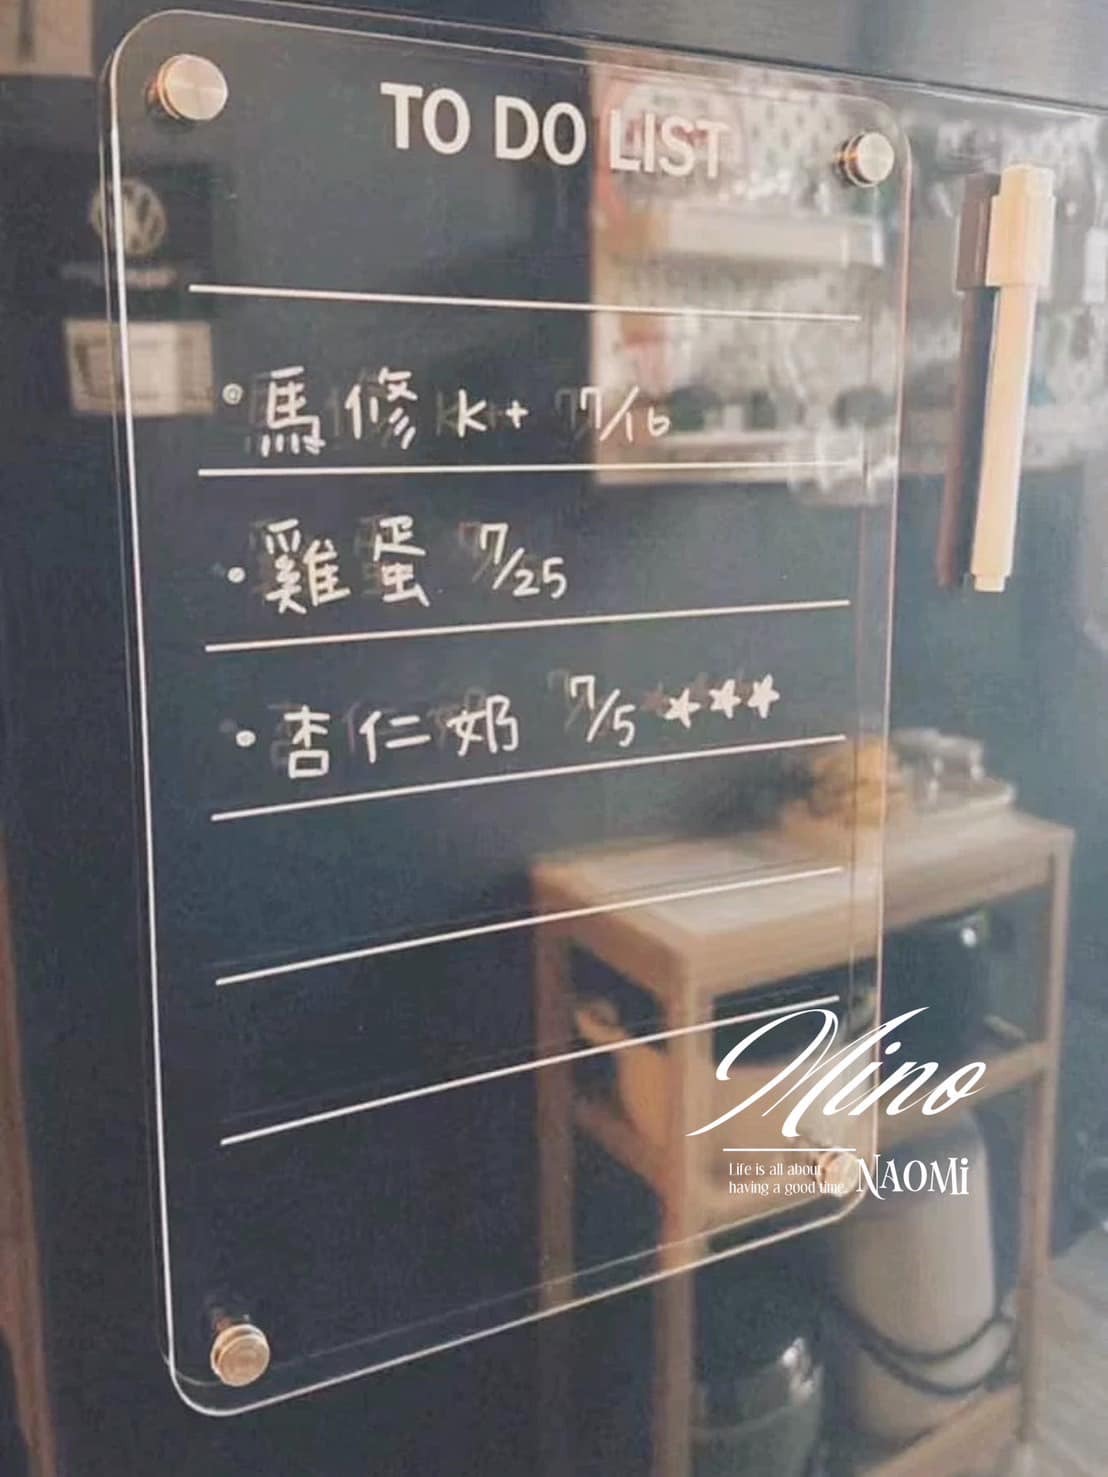 TO DO LIST
• 馬修 K+ 7/16
• 雞蛋 7/25
• 杏仁奶 7/5 ★★★
Nino
Life is all about
having a good time.
NAOMi